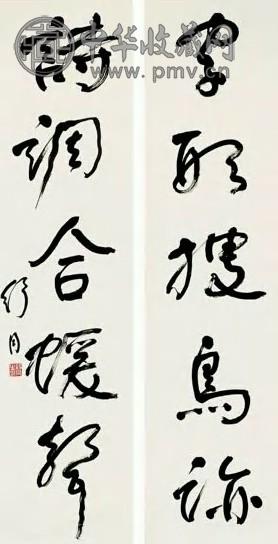 中华收藏网
www.pmv.cn
字形搜鳥跡
詩調合蝯聲
舒同